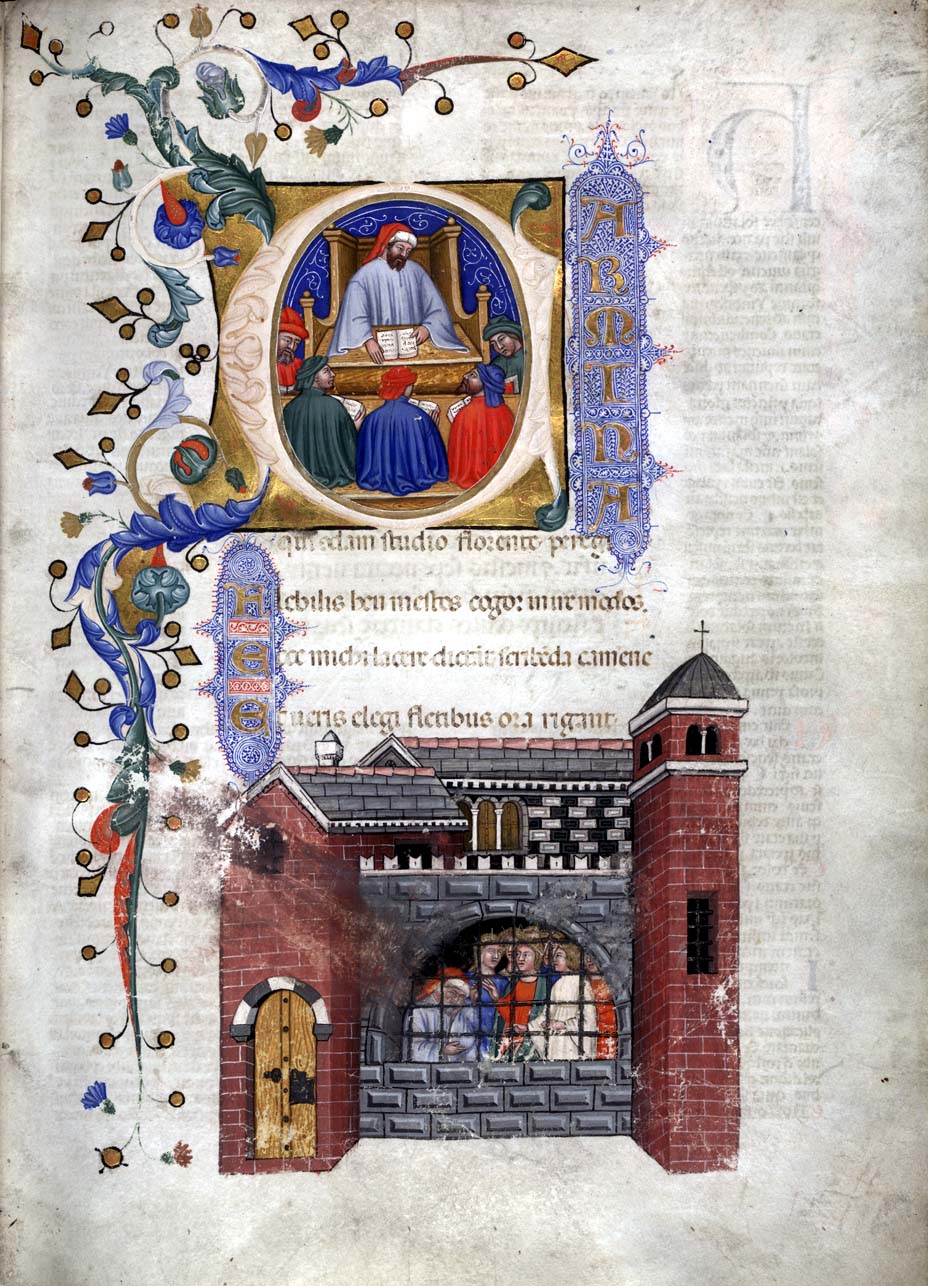 4
CARMINA
qui quondam studio florente peregi
Flebilis heu mestos cogor inire modos.
Ecce michi lacere dictāt scribēda camene
Et ueris elegi fletibus ora rigant.